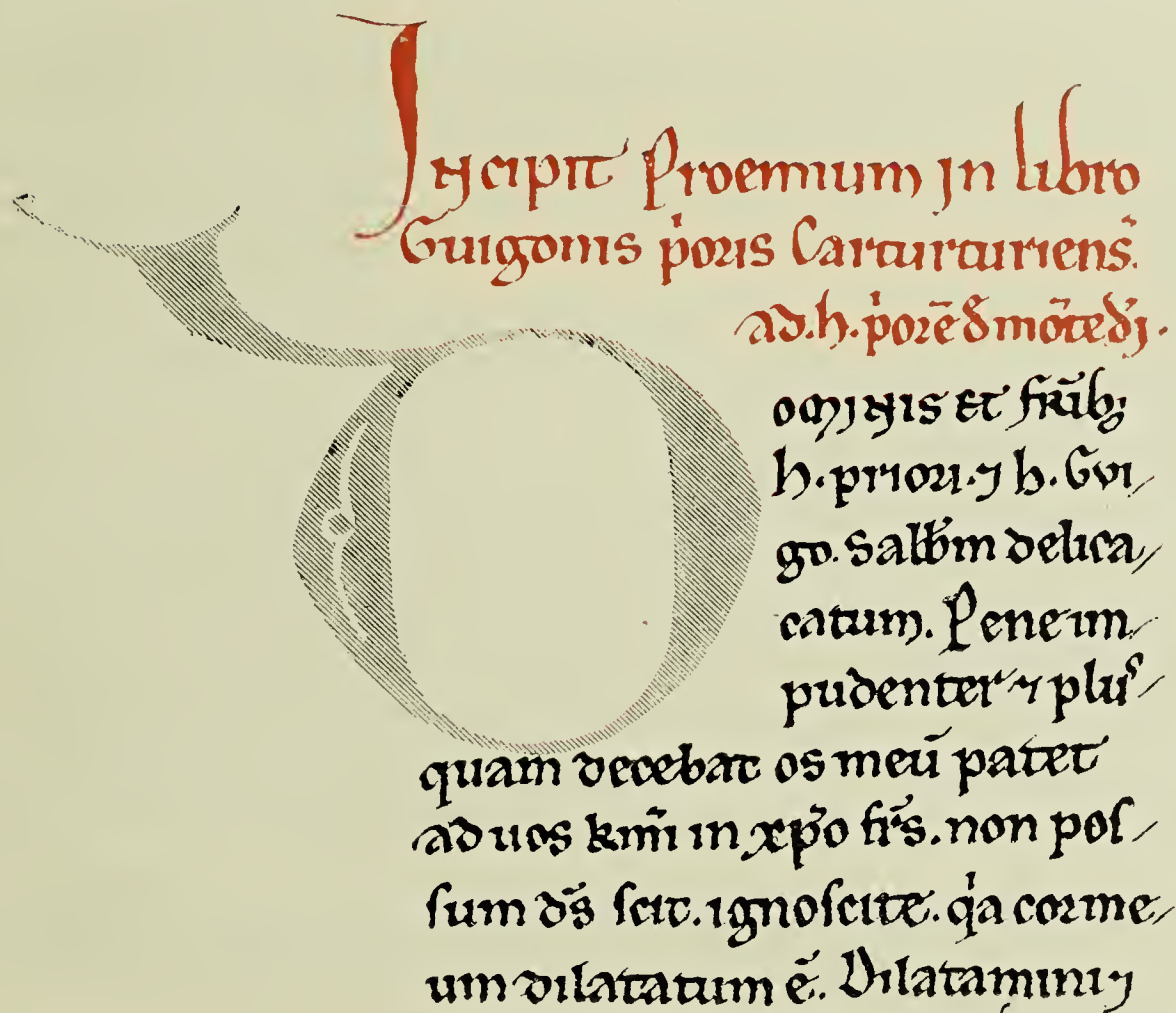 Incipit Proemium jn libro
Guigonis p̍oris Carturturiens̄.
ad.h. p̍orē đ mōte dī.
Dominis et fr̄ib;
h. priori. ⁊ h. Gvi/
go. Salƀm delica/
catum. Pene im/
pudenter ⁊ pluſ/
quam decebat os meū patet
ad uos km̄i in xp̄o fr̄s. non poſ/
ſum d̄s ſcit. ignoſcite. q̍a cor me/
um dilatatum ē. Dilatamini ⁊